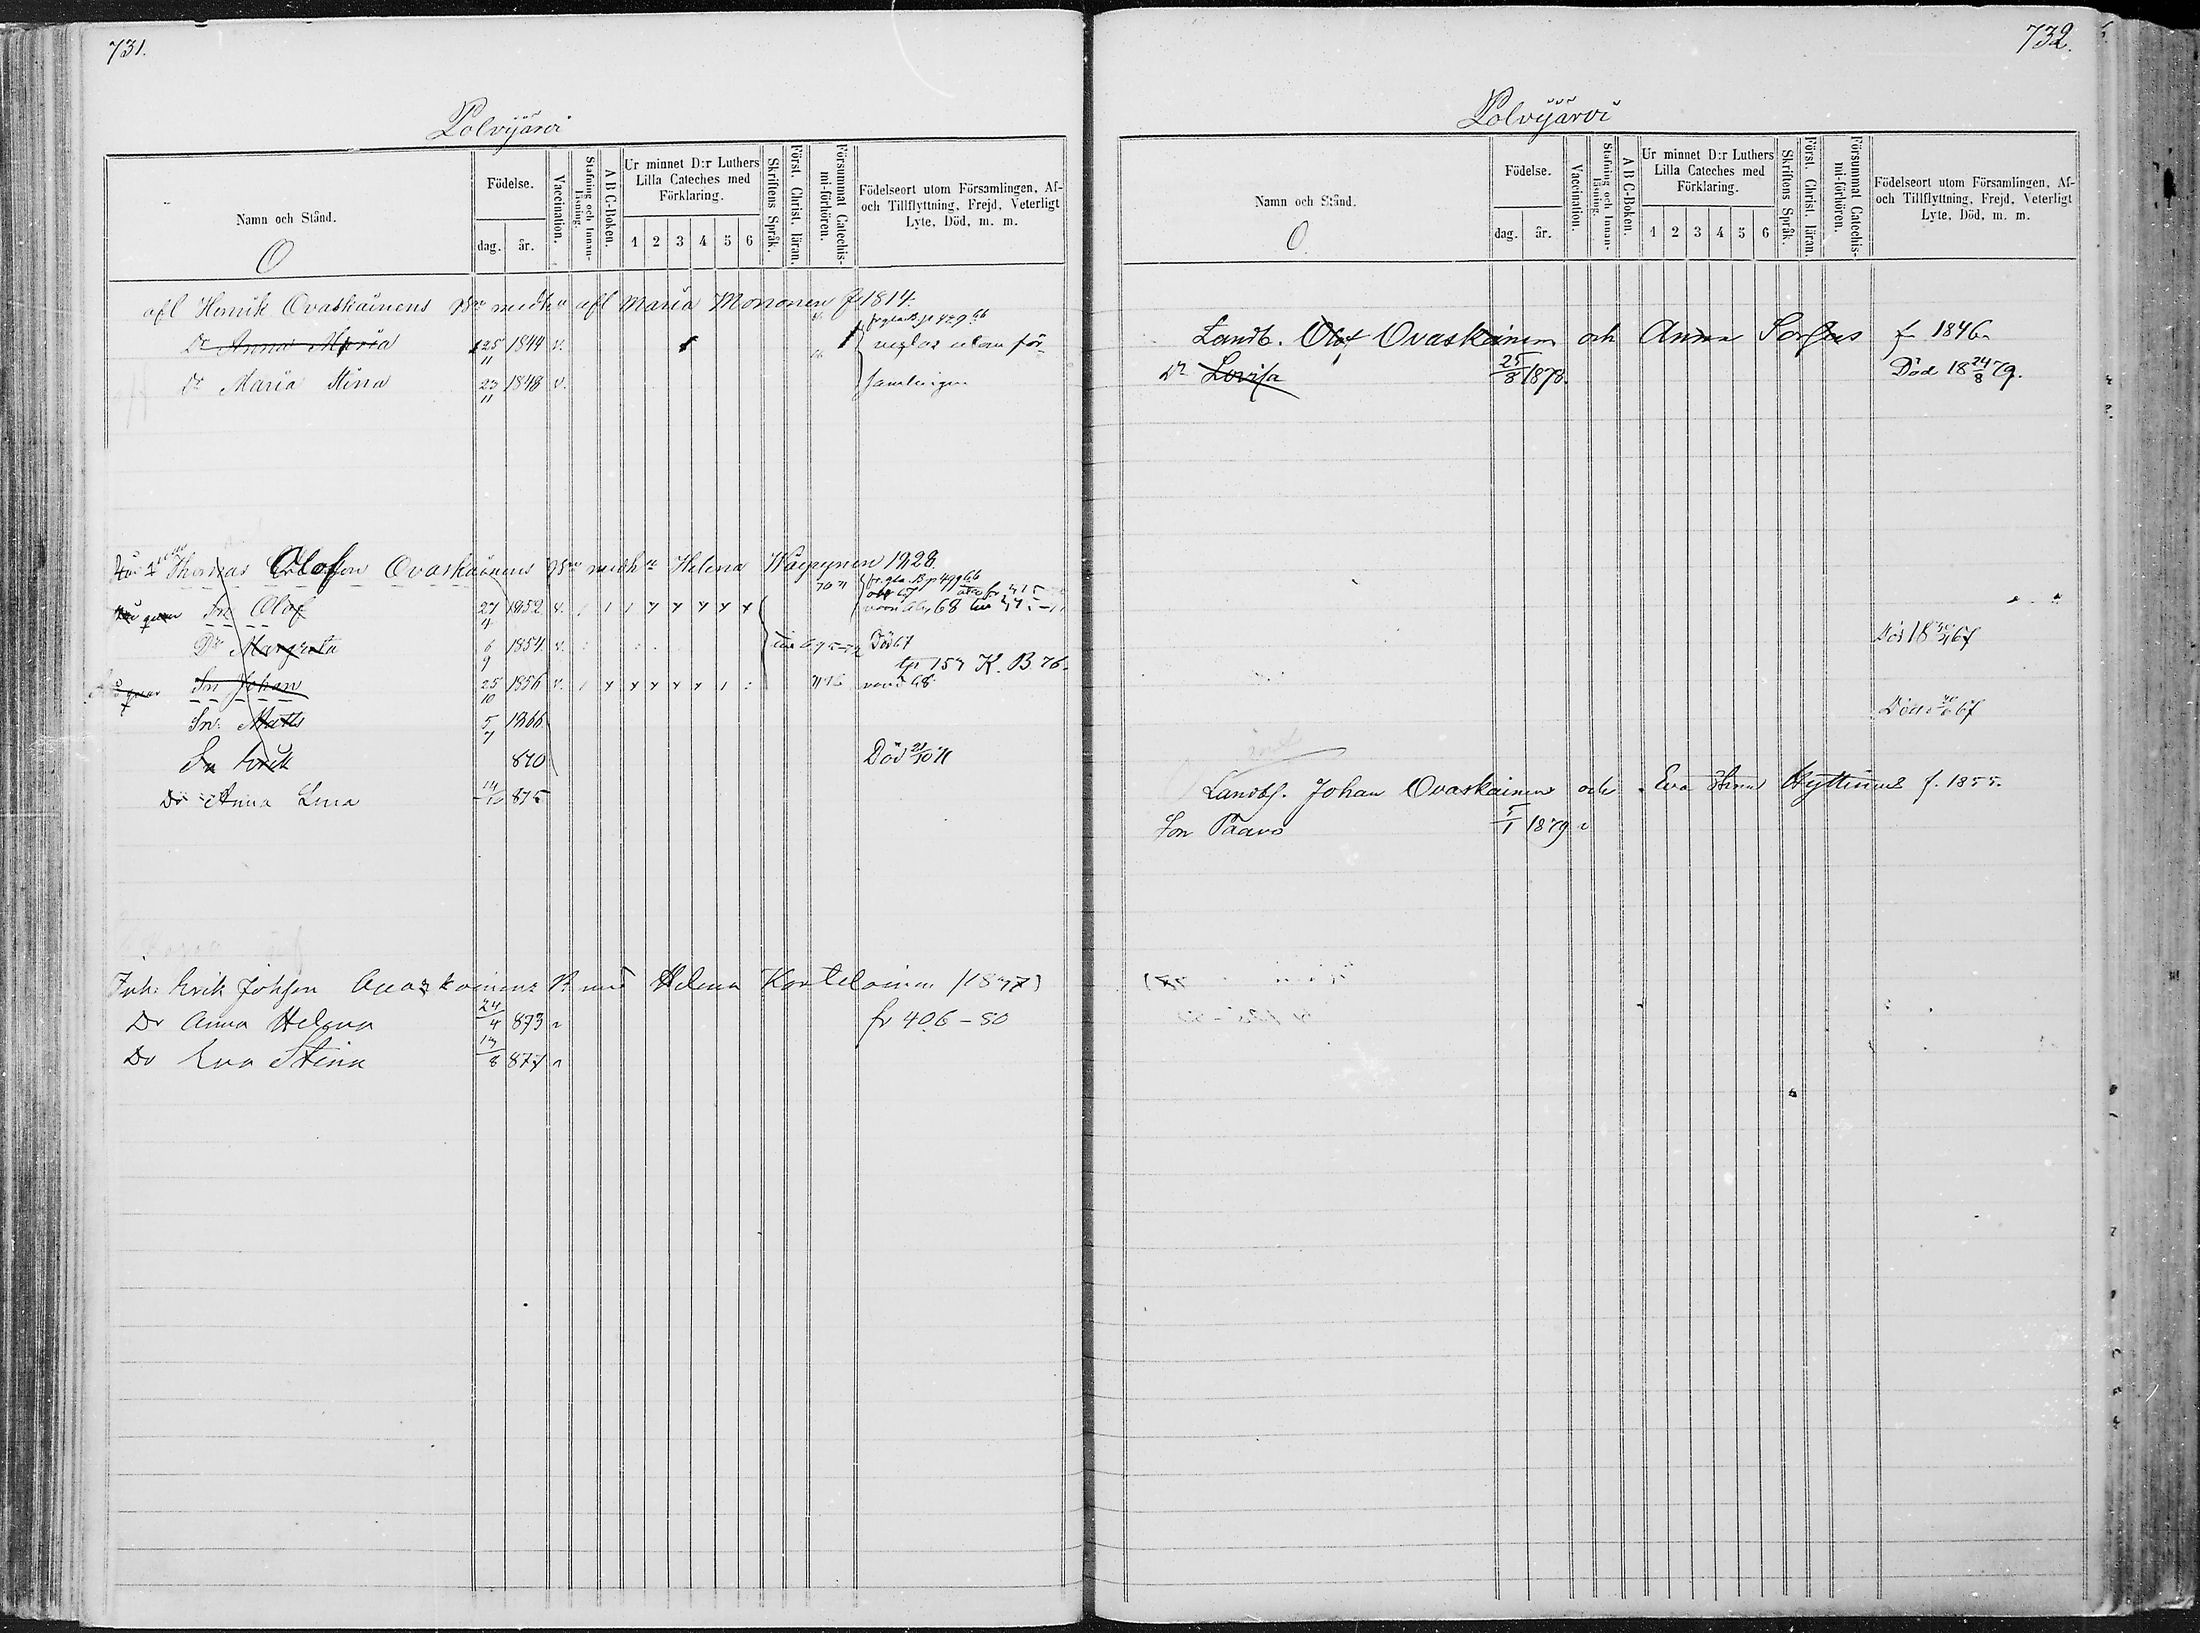 731.
Polvijärvi
Namn och Stånd.
O
Födelse.
dag.
år.
Vaccination.
Stafning och Innan-
läsning.
A B C-Boken.
Ur minnet D:r Luthers
Lilla Cateches med
Förklaring.
1 2 3 4 5 6
Skriftens Språk.
Först. Christ. läran.
Försummat Catechis-
mi-förhören.
Födelseort utom Församlingen, Af-
och Tillflyttning, Frejd, Veterligt
Lyte, Död, m. m.
afl Henrik Ovaskainens Bn med hu afl Maria Mononen f 1814.
Dr Anna Maria 25/11 1844 v.
vistas utom för-
Dr Maria Stina 23/11 1848 v.
samlingen
Thomas Olofson Ovaskainens Bn med hu Helena 1828.
Sn Olof 27/4 1852 v.
Dr Margreta 6/9 1854 v. Död 67
K. B 76.
Sn Johan 25/10 1856 v.
Sn Matts 5/7 1866
Sn Erik 870 Död 21/10 71
Dr Anna Lena 875
Inh: Erik Johsson Ovaskainens B med Helena Kortelainen (1847)
Dr Anna Helena 24/4 873 v fr 406-50
Dr Eva Stina 8 877 v
732.
Polvijärvi
Namn och Stånd.
O.
Födelse.
dag.
år.
Vaccination.
Stafning och Innan-
läsning.
A B C-Boken.
Ur minnet D:r Luthers
Lilla Cateches med
Förklaring.
1 2 3 4 5 6
Skriftens Språk.
Först. Christ. läran.
Försummat Catechis-
mi-förhören.
Födelseort utom Församlingen, Af-
och Tillflyttning, Frejd, Veterligt
Lyte, Död, m. m.
Landb. Olof Ovaskainen och Anna f 1846.
Dr Lovisa 25/8 1878. Död 18 24/8 79.
Landb. Johan Ovaskainen och Eva Stina Hyttinens f. 1855.
Son Paavo 5/1 1879 v